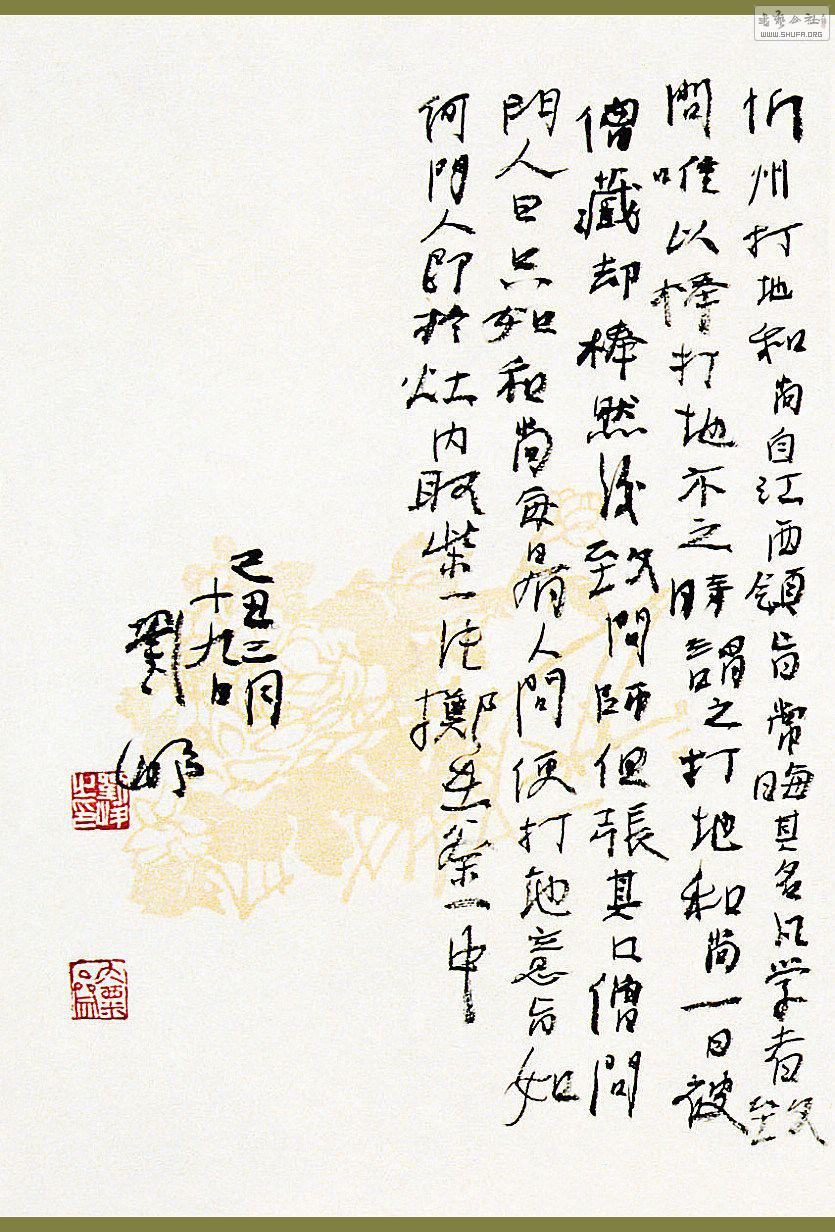 忻州打地和尚自江西領旨常晦其名凡学者致
問唯以棒打地示之時謂之打地和尚一日被
僧藏却棒然後致問師但張其口僧問
門人曰只如和尚每日有人問便打地意旨如
何門人即於灶内取柴一片擲在釜中
己丑二月
十九日
劉
WWW.SHUFA.ORG